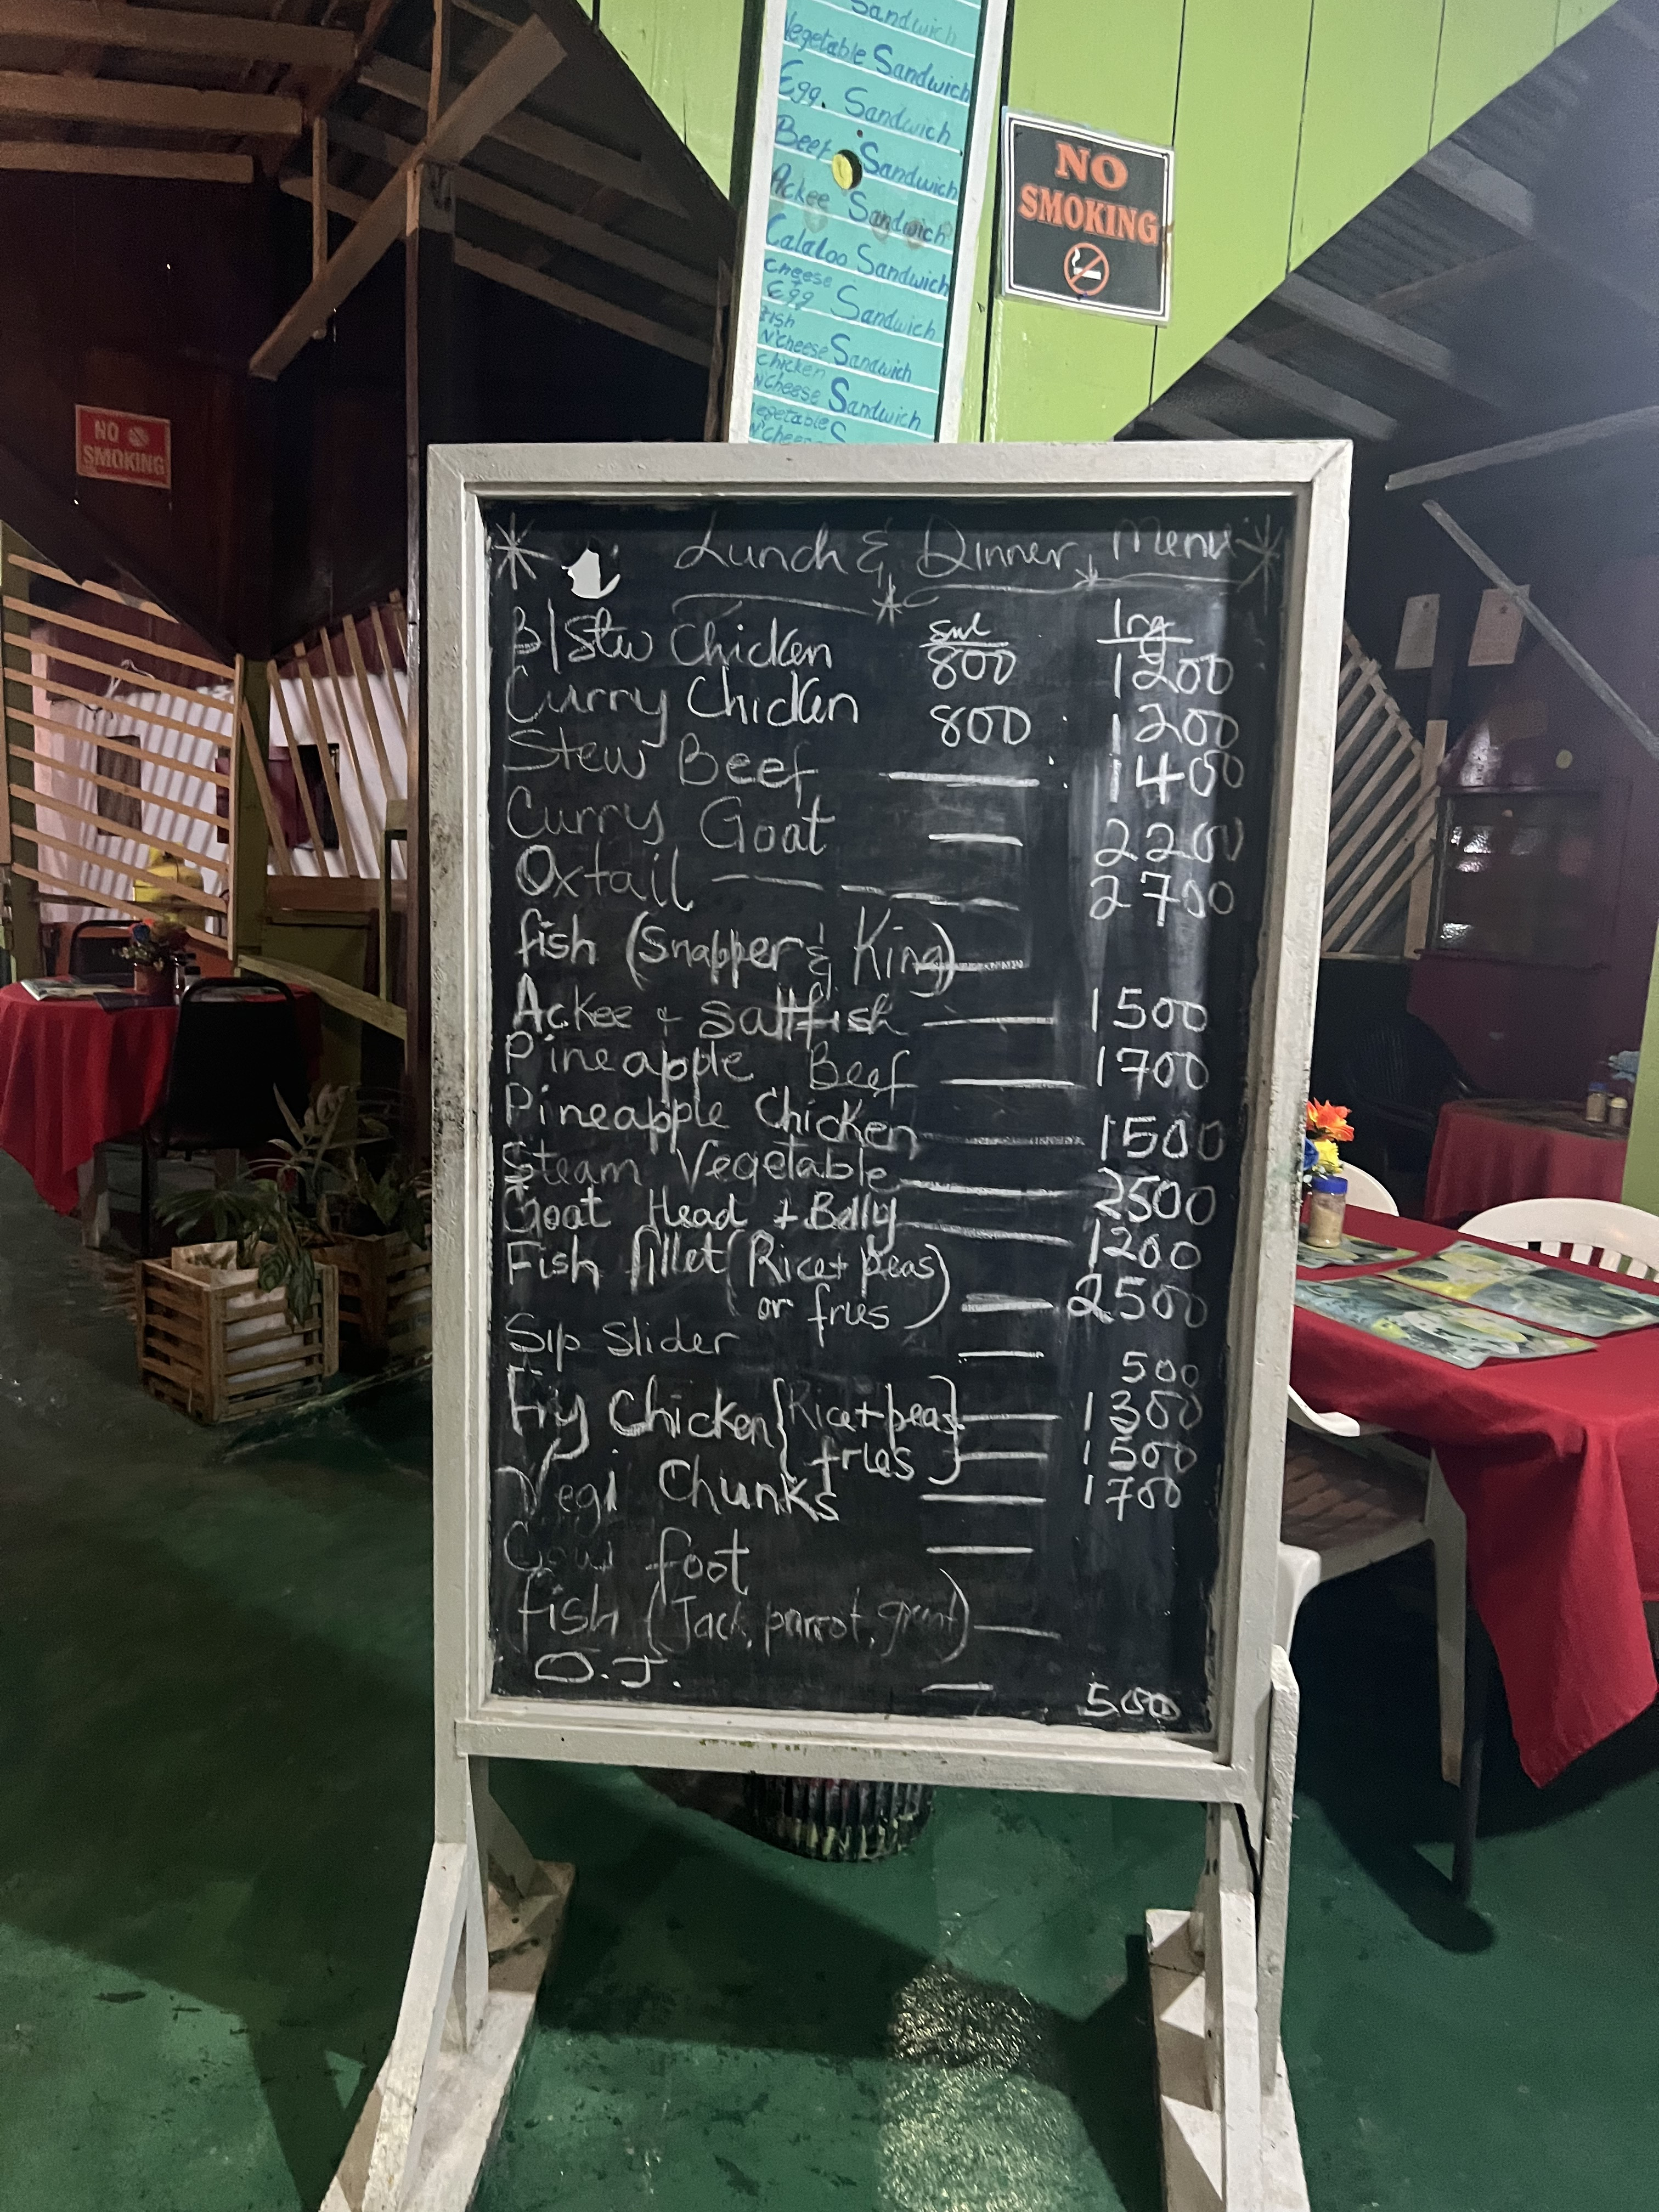 Sandwich
Vegetable Sandwich
Egg. Sandwich
Beef Sandwich
Ackee Sandwich
Calaloo Sandwich
Cheese
Egg Sandwich
Fish
N'Cheese Sandwich
Chicken
N'Cheese Sandwich
Vegetable S
N'Cheese
NO
SMOKING
NO
SMOKING
Lunch & Dinner Menu
sml lrg
B/Stew Chicken 800 1200
Curry Chicken 800 1200
Stew Beef 1400
Curry Goat 2200
Oxtail 2700
fish (Snapper & King)
Ackee & Saltfish 1500
Pineapple Beef 1700
Pineapple Chicken 1500
Steam Vegetable 2500
Goat Head + Belly 1200
Fish fillet (Rice + peas
or fries) 2500
Sip Slider 500
Fry Chicken {Rice + peas} 1300
fries 1500
Vegi Chunks 1700
Cow foot
fish (Jack, parrot, grunt)
O.J. 500